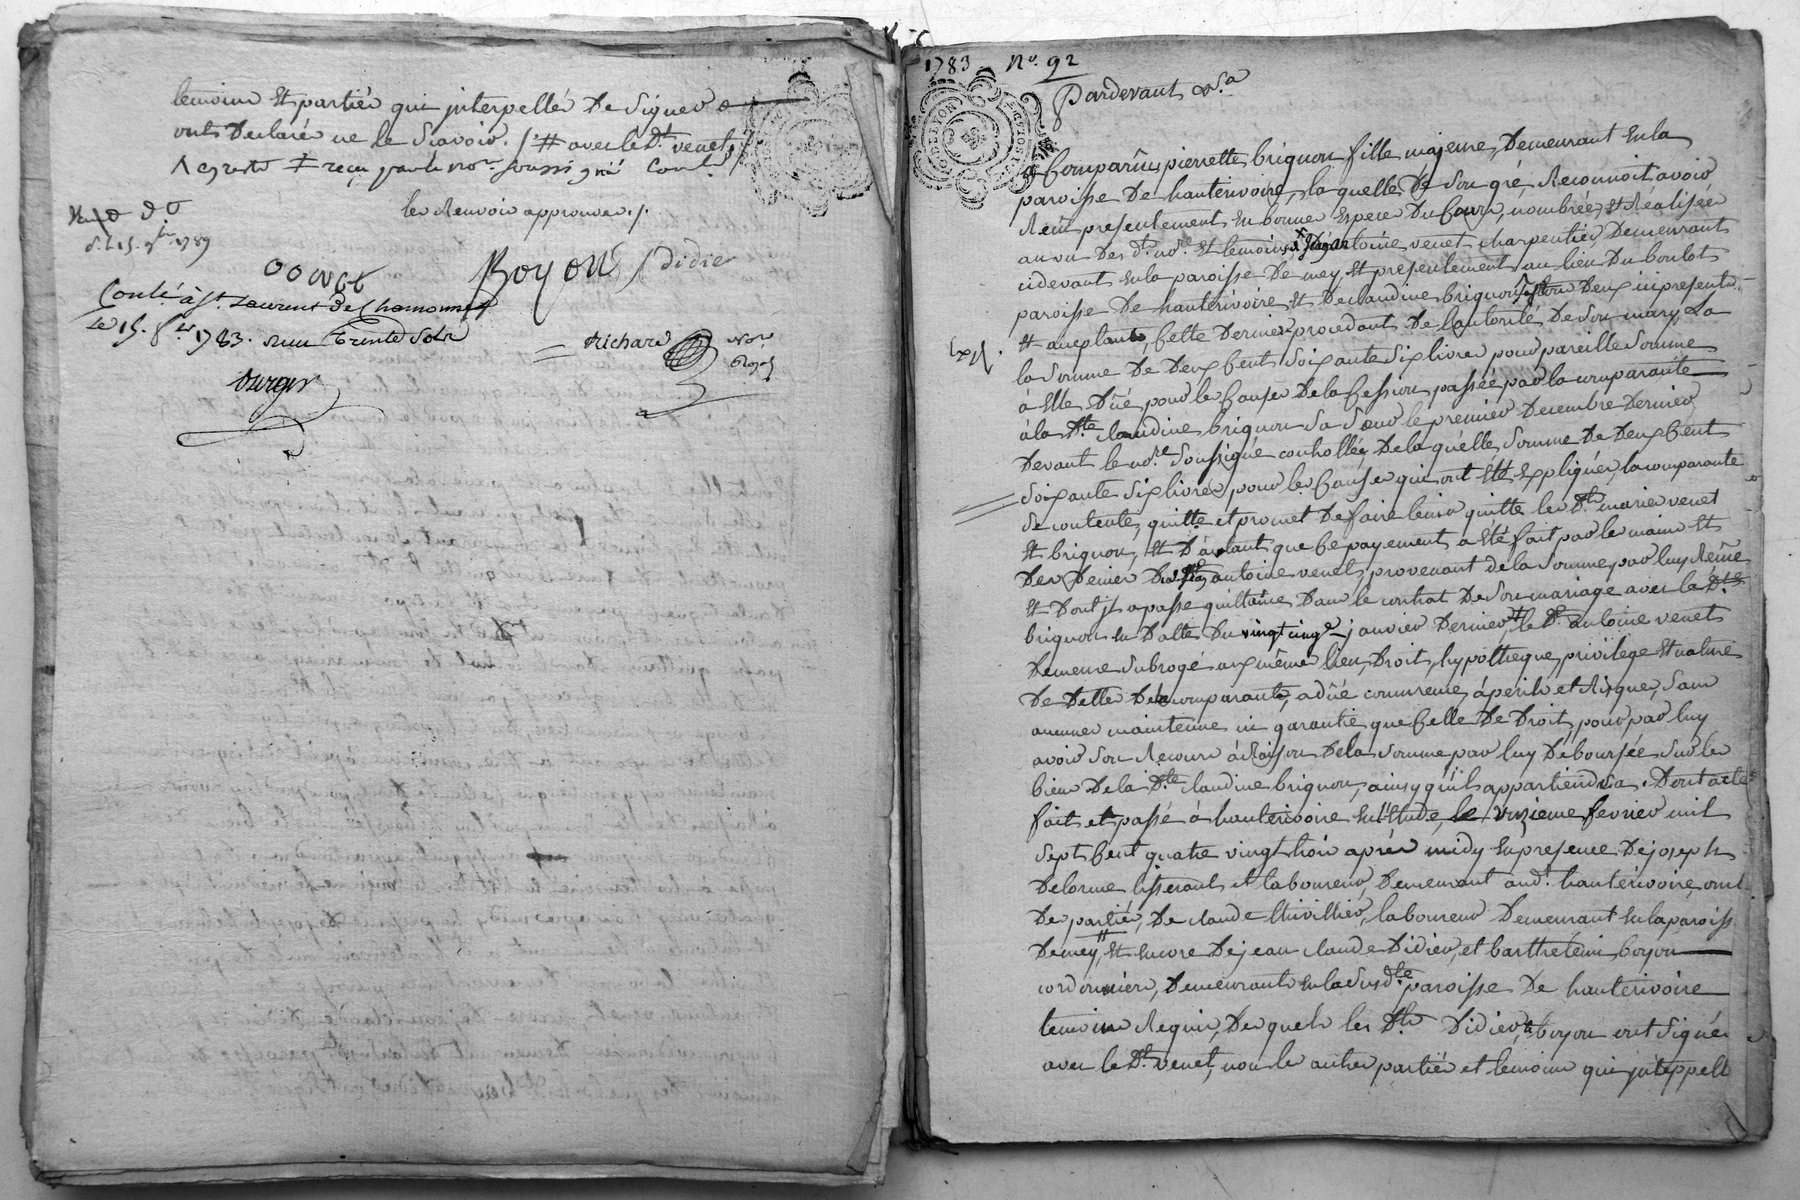 temoins et parties qui interpellés de signer
ont declarés ne le scavoir. /. # avec le dt. venet /
reçu par le nore. soussigné
les Renvois approuvés ./.
BOYON
didier
Conlé à st. Laurent de Chamousset
Le 15. fer. 1783. reçu trente sols
Richard
nore.
Royal
1783 No. 92
Pardevant &a.
Comparûe pierrette brignon fille majeure, Demeurant en la
paroisse De hauterivoire, laquelle De son gré, Reconnoit avoir
Reçû presentement en bonnes especes Du Cours, nombrées, et Réalisées
au vu Des dts. nore. et temoins, antoine venet charpentier Demeurant
cidevant en la paroisse De mey, et presentement au lieu Du boulot
paroisse De hauterivoire et De claudine brignon Deux ici presents
et acceptants, Cette Derniere procedant De l'autorité De son mary, La
la somme De Deux Cent soixante six livres pour pareille somme
à elle Dûe pour les Causes De la Cession passée par la comparante
à la dte. claudine brignon sa sœur le premier Decembre Dernier
Devant le nore. soussigné controllée, De laquelle somme De Deux Cent
soixante six livres, pour les Causes qui ont été Expliquées, la comparante
se contente, quitte et promet De faire tenir quitte les dts. mariés venet
et brignon, et D'autant que Ce payement a été fait par les mains et
Des Deniers antoine venet, provenant de la somme par luy Reçüe
et Dont il a passé quittance Dans le contrat De son mariage avec la dte.
brignon en Datte Du vingt cinq janvier Dernier, le dt. antoine venet
Demeure subrogé aux mêmes lieu, Droit, hypotheque, privilege et nature
De Dette De la comparante, a dûe concurrence, à perils et Risques, sans
aucunes maintenue ni garantie que Celle De Droit, pour par luy
avoir son Recours à Raison De la somme par luy Deboursée, sur les
biens De la dte. claudine brignon, ainsy qu'il appartiendra. Dont acte
fait et passé à hauterivoire en l'Etude, le onzieme fevrier mil
sept Cent quatre vingt trois après midy en presence De joseph
Delorme tisserant et laboureur, Demeurant aud. hauterivoire,
De parties, De claude laboureur Demeurant en la paroisse
De mey, et encore De jean claude Didier, et barthelemi boyon
cordonniers, Demeurants en la susdte. paroisse De hauterivoire
temoins Requis, Desquels les dts. Didier, & boyon ont signés
avec le dt. venet, non les autres parties et temoins qui interpellés